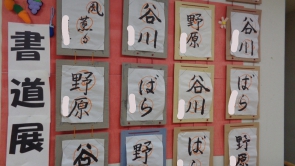 書道展
風薫る
谷川
野原
谷川
野原
ばら
谷川
ばら
谷
野
ばら
野原